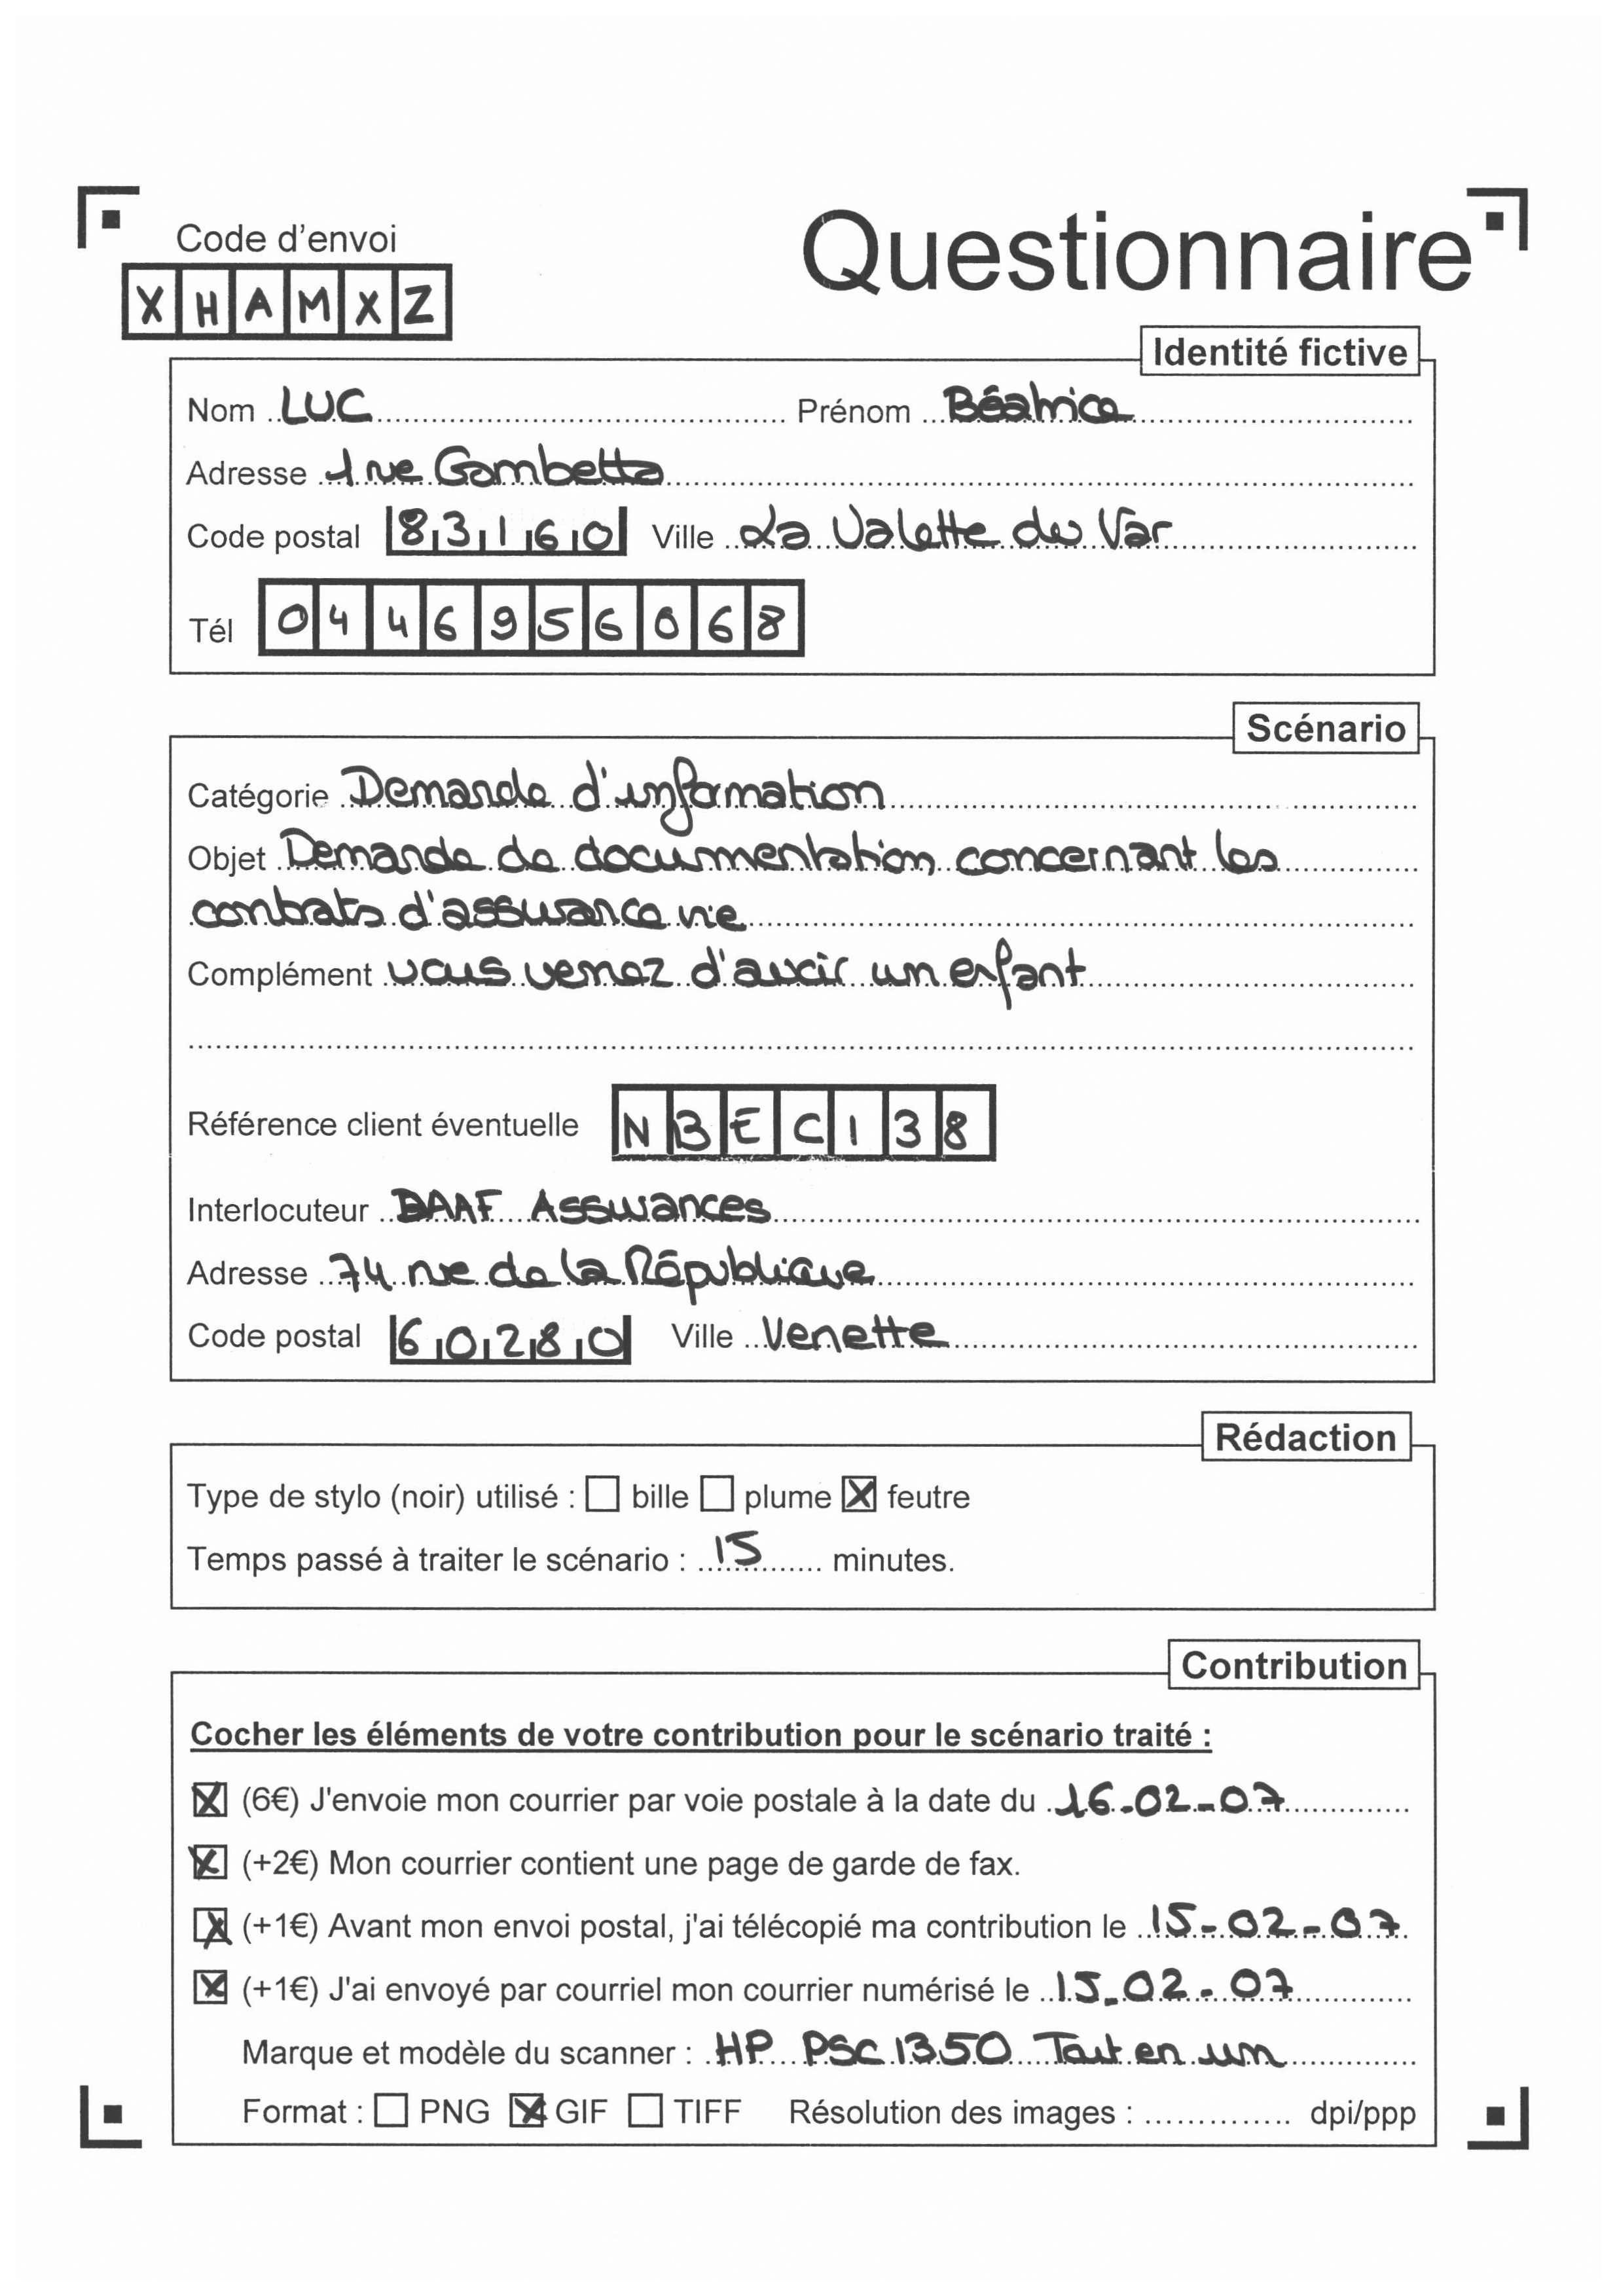 Code d'envoi
Questionnaire
XHAMXZ
Identité fictive
Nom LUC Prénom Béatrice
Adresse 1 rue Gambetta
Code postal 83160 Ville La Valette du Var
Tél 0446956068
Scénario
Catégorie Demande d'information
Objet Demande de documentation concernant les
contrats d'assurance vie
Complément vous venez d'avoir un enfant
Référence client éventuelle NBEC138
Interlocuteur BAAF Assurances
Adresse 74 rue de la République
Code postal 60280 Ville Venette
Rédaction
Type de stylo (noir) utilisé : bille plume feutre
Temps passé à traiter le scénario : 15 minutes.
Contribution
Cocher les éléments de votre contribution pour le scénario traité :
(6€) J'envoie mon courrier par voie postale à la date du 16-02-07
(+2€) Mon courrier contient une page de garde de fax.
(+1€) Avant mon envoi postal, j'ai télécopié ma contribution le 15-02-07
(+1€) J'ai envoyé par courriel mon courrier numérisé le 15-02-07
Marque et modèle du scanner : HP PSC 1350 Tout en un
Format : PNG GIF TIFF Résolution des images : .............. dpi/ppp